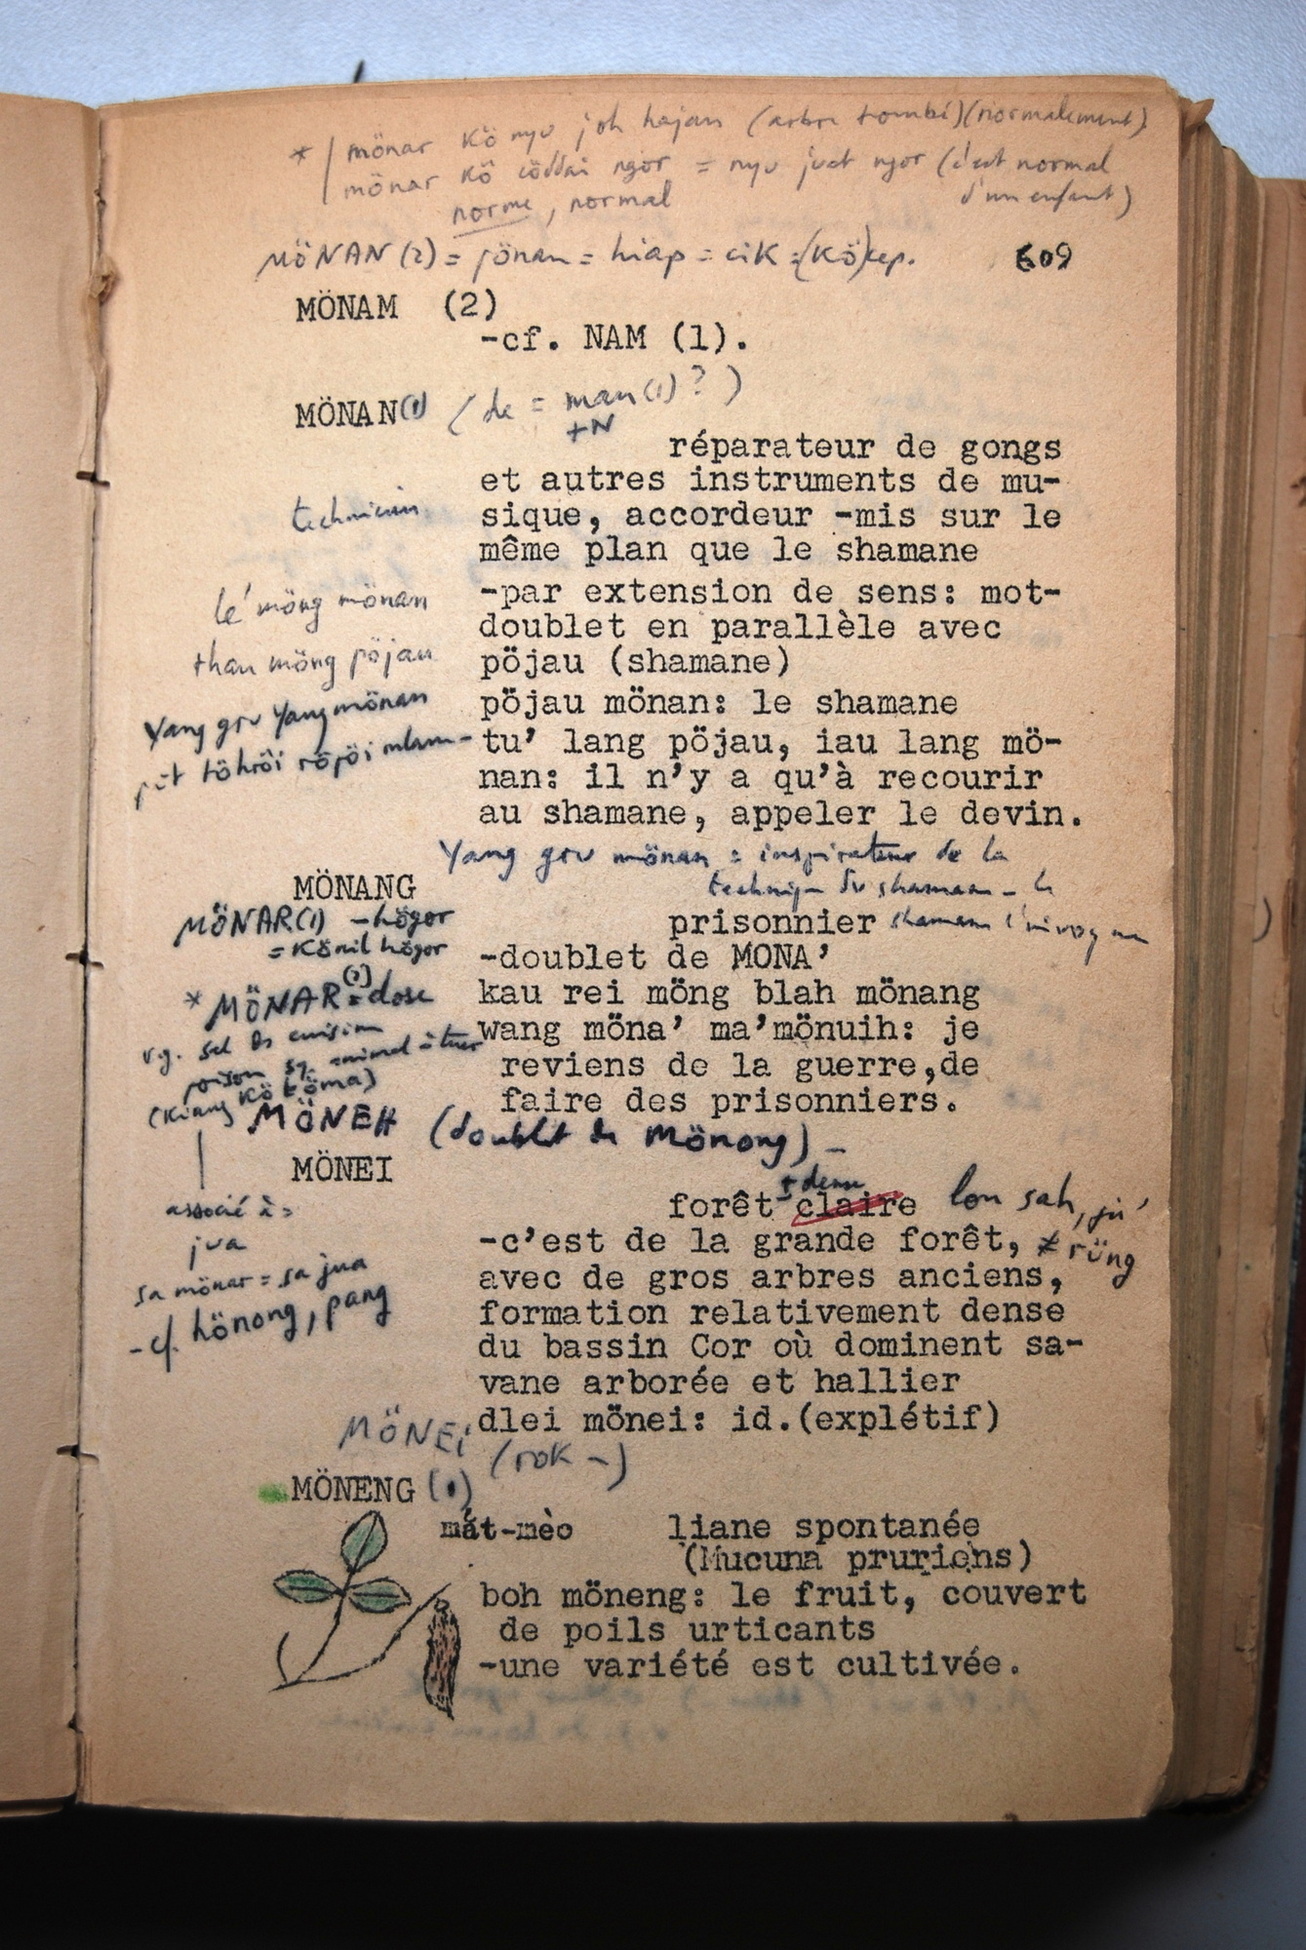 * mönar kö nyu joh hajan (arbre tombé) (normalement)
mönar kö cöddai ngor = nyu juat ngor (c'est normal
norme, normal d'un enfant)
MÖNAN (2) = jönan = hiap = cik = (kö)cep. 609
MÖNAM (2)
-cf. NAM (1).
MÖNAN(1) (de = man(1) ? )
+N
réparateur de gongs
et autres instruments de mu-
technicien sique, accordeur -mis sur le
même plan que le shamane
lé möng mönan -par extension de sens: mot-
doublet en parallèle avec
than möng pöjau pöjau (shamane)
Yang gru Yang mönan pöjau mönan: le shamane
pöt töhröi röjöi mlam- tu' lang pöjau, iau lang mö-
nan: il n'y a qu'à recourir
au shamane, appeler le devin.
Yang gru mönan = inspirateur de la
MÖNANG technique du shamane - le
MÖNAR(1) -högor prisonnier shamane l'invoque
= könil högor -doublet de MONA'
* MÖNAR(2) = dose kau rei möng blah mönang
v.g. sel de cuisine wang möna' ma'mönuih: je
poison sg. animal à tuer reviens de la guerre,de
(kiang kö töma) faire des prisonniers.
MÖNEH (doublet de Mönong) -
MÖNEI
+ dense
forêt claire lon sah, jü'
associé à = -c'est de la grande forêt, ≠ rüng
jua avec de gros arbres anciens,
sa mönar = sa jua formation relativement dense
- cf. hönong, pang du bassin Cor où dominent sa-
vane arborée et hallier
dlei mönei: id.(explétif)
MÖNEi (rok -)
MÖNENG (1)
mát-mèo liane spontanée
(Mucuna pruriens)
boh möneng: le fruit, couvert
de poils urticants
-une variété est cultivée.